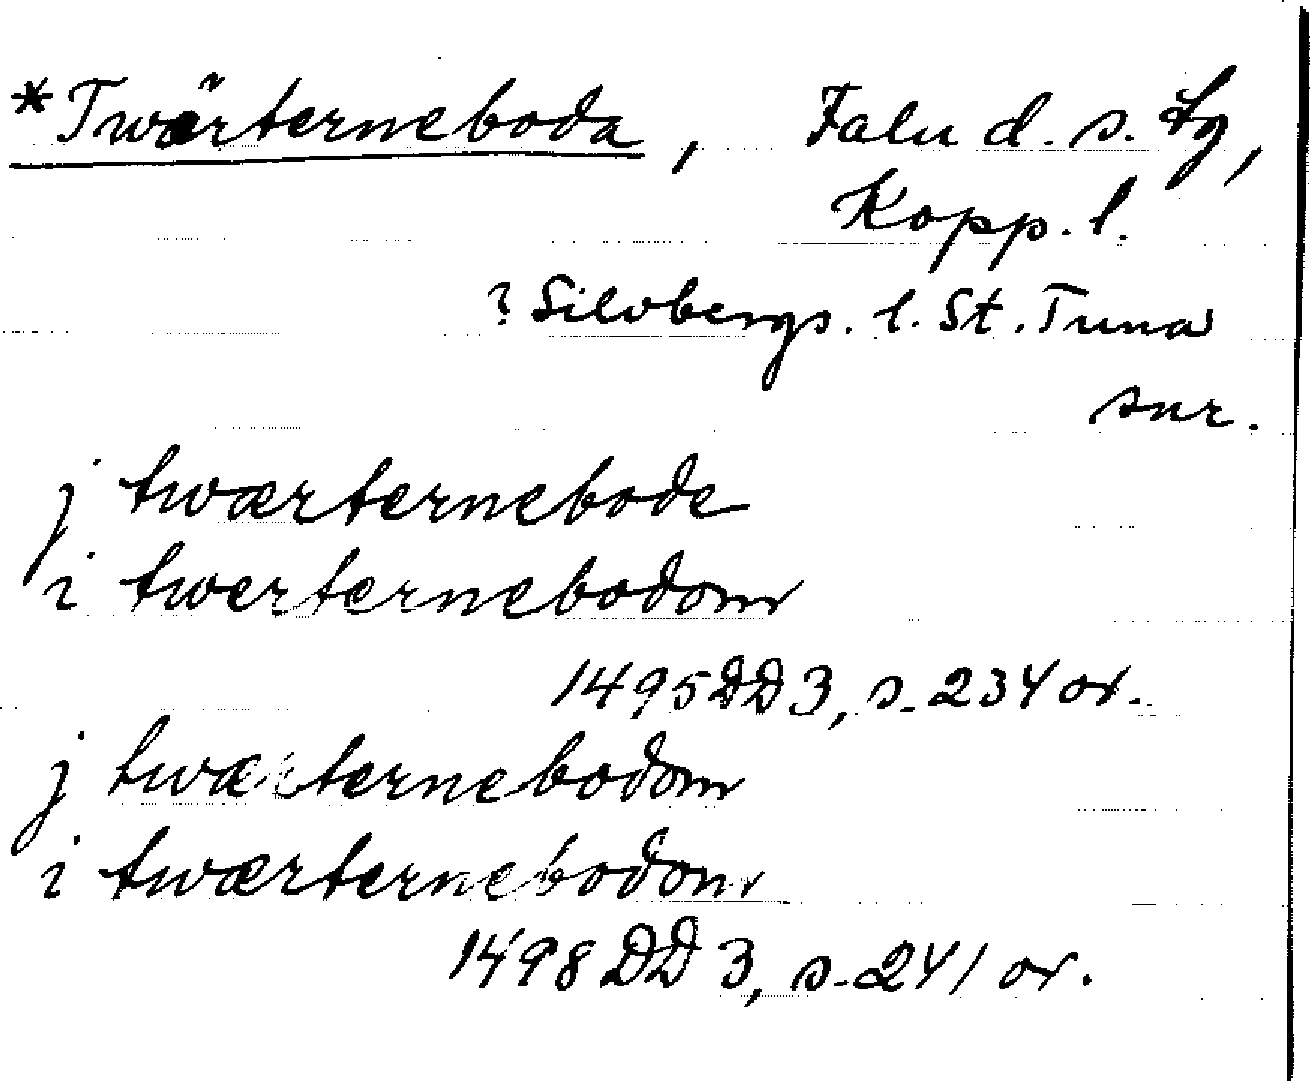 *Twärterneboda, Falu d. s. tg,
Kopp. l.
? Silvbergs. l. St. Tuna
snr.
j twærternebode
i twerternebodom
1495 DD 3, s. 234 or.
j twærternebodom
i twærternebodom
1498 DD 3, s. 241 or.